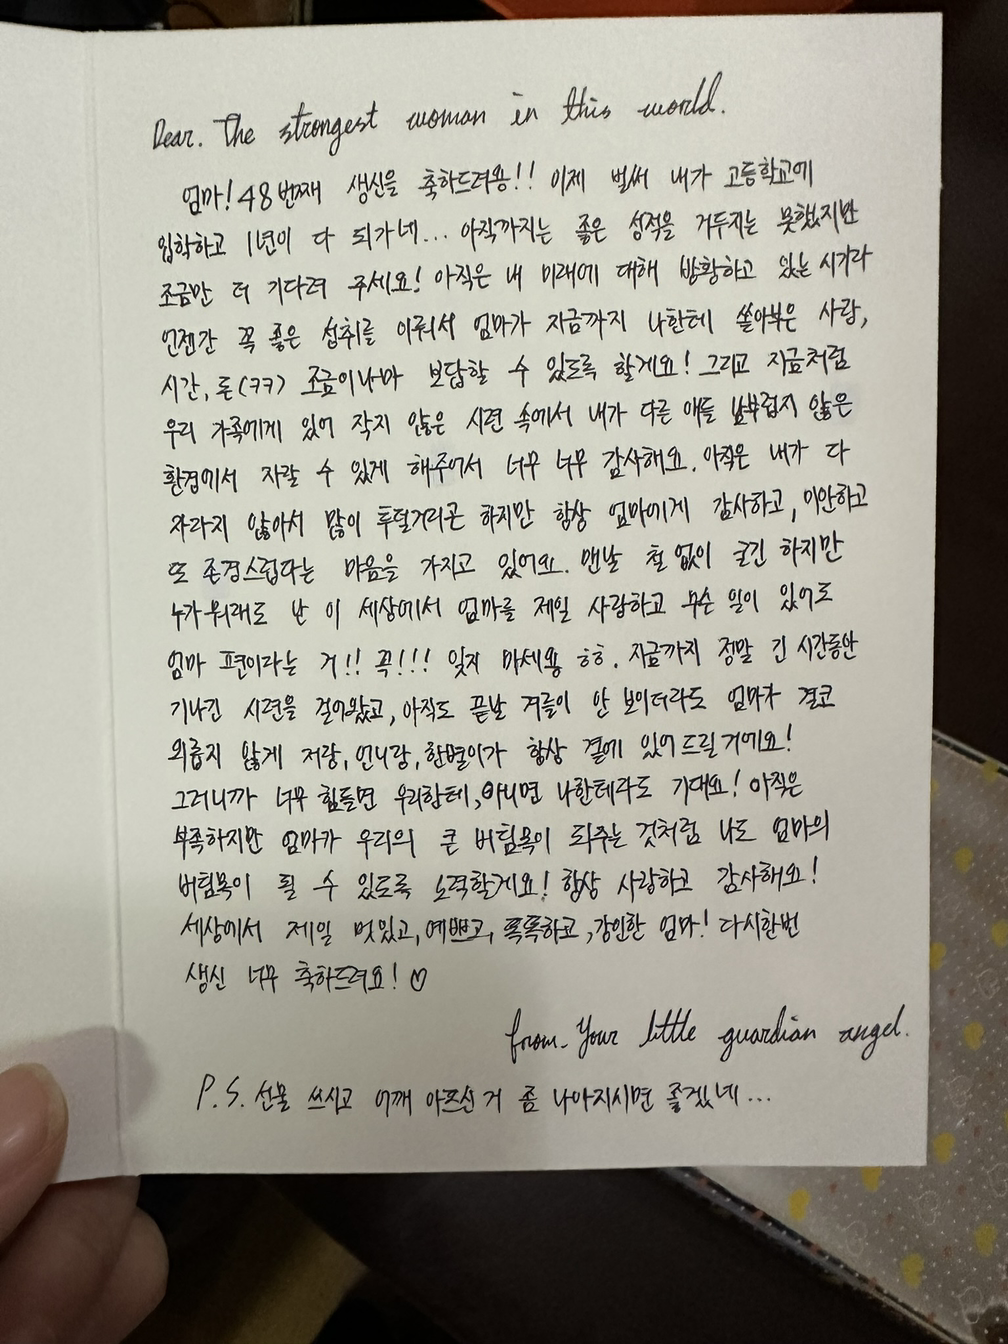 Dear. The strongest woman in this world.
엄마! 48번째 생신을 축하드려용!! 이제 벌써 내가 고등학교에
입학하고 1년이 다 되가네... 아직까지는 좋은 성적을 거두지는 못했지만
조금만 더 기다려 주세요! 아직은 내 미래에 대해 방황하고 있는 시기라
언젠간 꼭 좋은 성취를 이뤄서 엄마가 지금까지 나한테 쏟아부은 사랑,
시간, 돈(ㅋㅋ) 조금이나마 보답할 수 있도록 할게요! 그리고 지금처럼
우리 가족에게 있어 작지 않은 시련 속에서 내가 다른 애들 남부럽지 않은
환경에서 자랄 수 있게 해주어서 너무 너무 감사해요. 아직은 내가 다
자라지 않아서 많이 투덜거리곤 하지만 항상 엄마에게 감사하고, 미안하고
또 존경스럽다는 마음을 가지고 있어요. 맨날 철 없이 굴긴 하지만
누가 뭐래도 난 이 세상에서 엄마를 제일 사랑하고 무슨 일이 있어도
엄마 편이라는 거!! 꼭!!! 잊지 마세용 ㅎㅎ. 지금까지 정말 긴 시간동안
기나긴 시련을 걸어왔고, 아직도 끝날 겨를이 안 보이더라도 엄마가 결코
외롭지 않게 저랑, 언니랑, 한별이가 항상 곁에 있어 드릴 거에요!
그러니까 너무 힘들면 우리한테, 아니면 나한테라도 기대요! 아직은
부족하지만 엄마가 우리의 큰 버팀목이 되주는 것처럼 나도 엄마의
버팀목이 될 수 있도록 노력할게요! 항상 사랑하고 감사해요!
세상에서 제일 멋있고, 예쁘고, 똑똑하고, 강인한 엄마! 다시한번
생신 너무 축하드려요! ♡
from. Your little guardian angel.
P.S. 선물 쓰시고 어깨 아프신 거 좀 나아지시면 좋겠네...